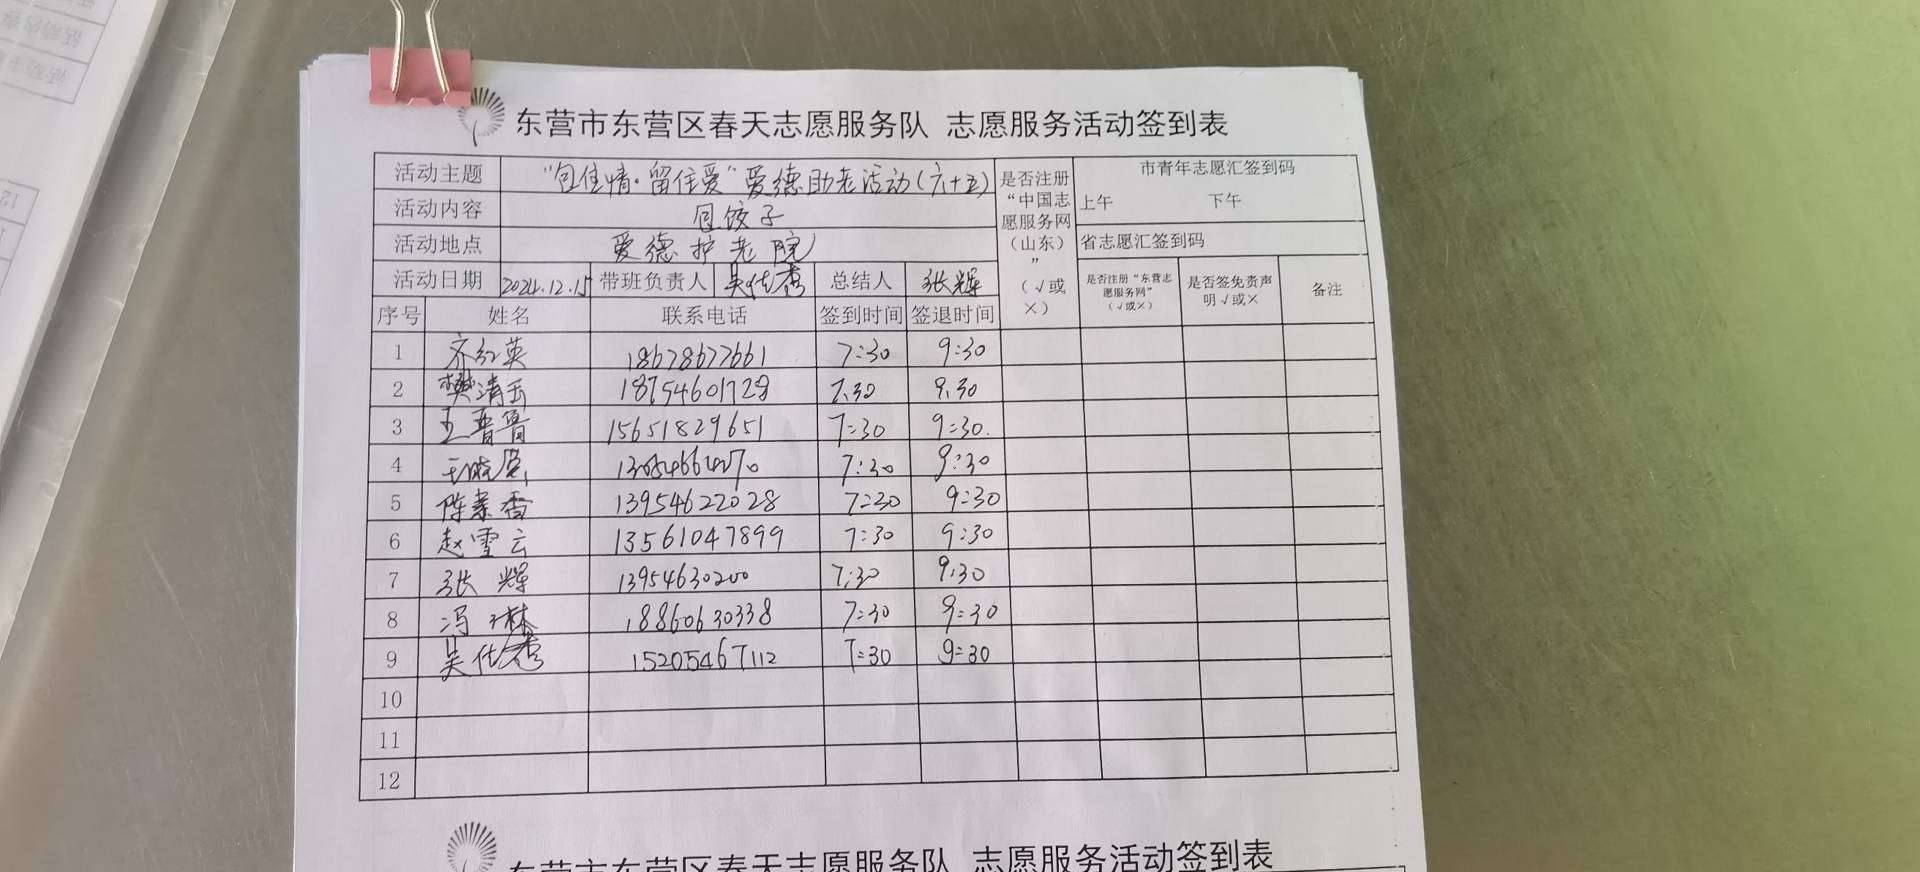 东营市东营区春天志愿服务队 志愿服务活动签到表
活动主题 “包住情·留住爱”爱德助老活动(六十五)
活动内容 包饺子
活动地点 爱德护老院
活动日期 2024.12.15 带班负责人 吴仕秀 总结人 张辉
是否注册“中国志愿服务网(山东)”(√或×)
市青年志愿汇签到码
上午 下午
省志愿汇签到码
是否注册“东营志愿服务网”(√或×) 是否签免责声明√或× 备注
序号 姓名 联系电话 签到时间 签退时间
1 齐红英 18678677661 7:30 9:30
2 樊清玉 18754601728 7:30 9:30
3 王晋鲁 15651829651 7:30 9:30
4 7:30 9:30
5 陈素香 13954622028 7:30 9:30
6 赵雪云 13561047899 7:30 9:30
7 张辉 13954630200 7:30 9:30
8 冯琳 18860630338 7:30 9:30
9 吴仕秀 15205467112 7:30 9:30
10
11
12
东营市东营区春天志愿服务队 志愿服务活动签到表